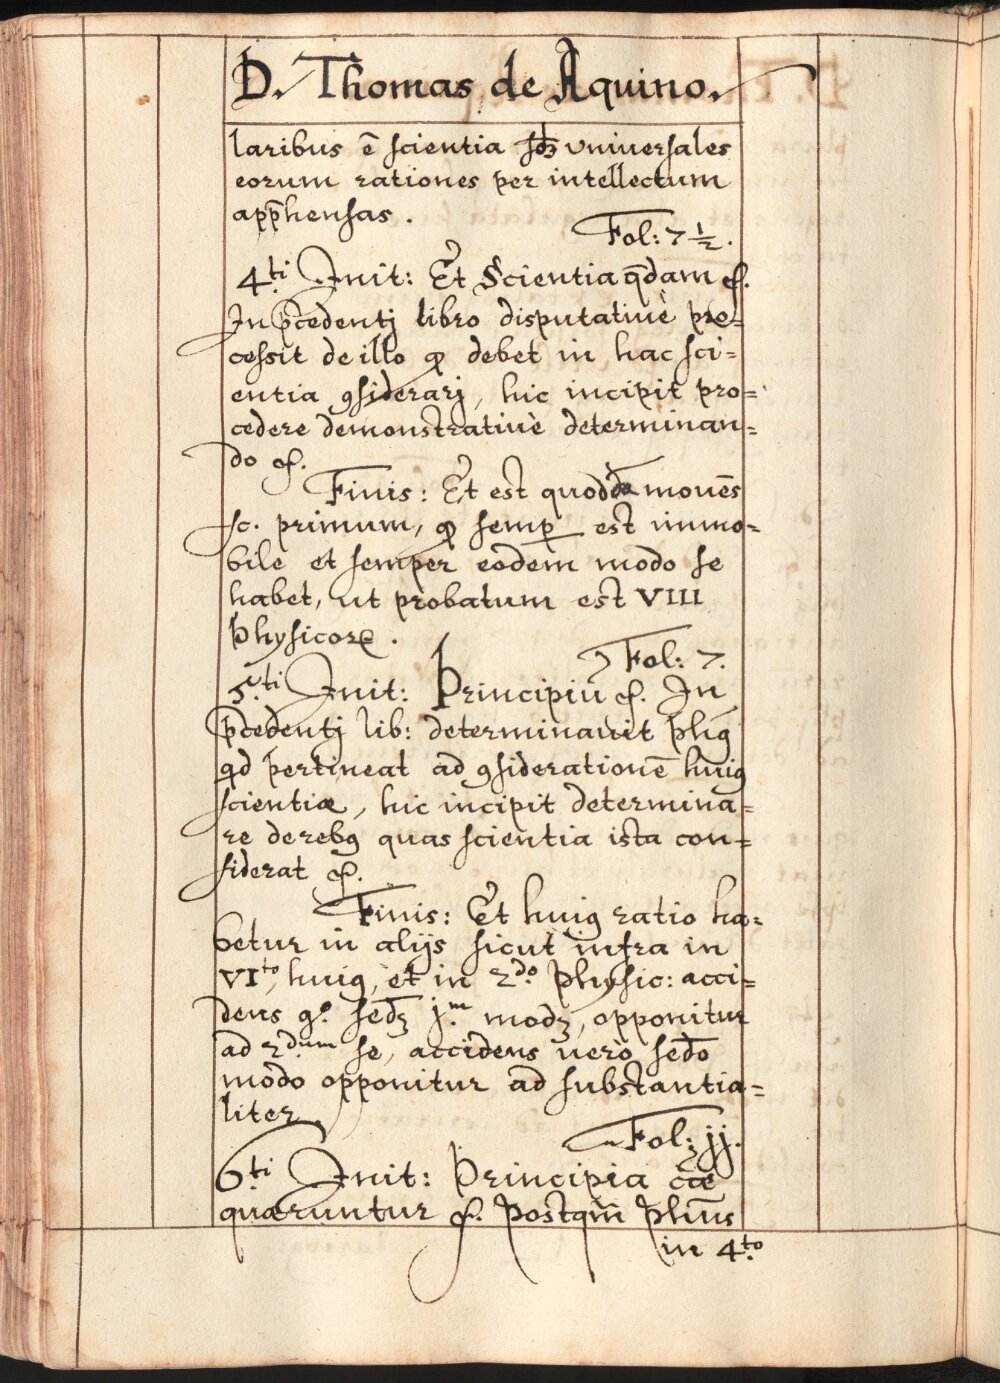 D. Thomas de Aquino.
laribus ē scientia scdȝ vniuersales
eorum rationes per intellectum
app̄hensas .
Fol: 7 ½.
4.ti Jnit: Et Scientia q̄dam &.
Jn p̄cedentj libro disputatiuè pro=
cessit de illo qđ debet in hac sci=
entia ꝯsiderarj, hic incipit pro=
cedere demonstratiuè determinan=
do &.
Finis: Et est quoddā mouēs
sc. primum, qđ semꝑ est immo=
bile et semper eodem modo se
habet, ut probatum est VIII
Physicorꝝ .
Fol: 7.
5.ti Jnit: Principiū &. Jn
p̄cedentj lib: determinauit phūs
qd pertineat ad ꝯsiderationē huiꝰ
scientiæ, hic incipit determina=
re de rebꝰ quas scientia ista con=
siderat &.
Finis: Et huiꝰ ratio ha=
betur in alijs sicut infra in
VI.to huiꝰ, et in 2.do Physic: acci=
dens g.o secdȝ j.m modȝ, opponitur
ad 2.dum se, accidens uerò secdo
modo opponitur ad substantia=
liter.
Fol: jj.
6.ti Jnit: Principia &cæ
quæruntur &. Postqm̄ Phūs
in 4.to